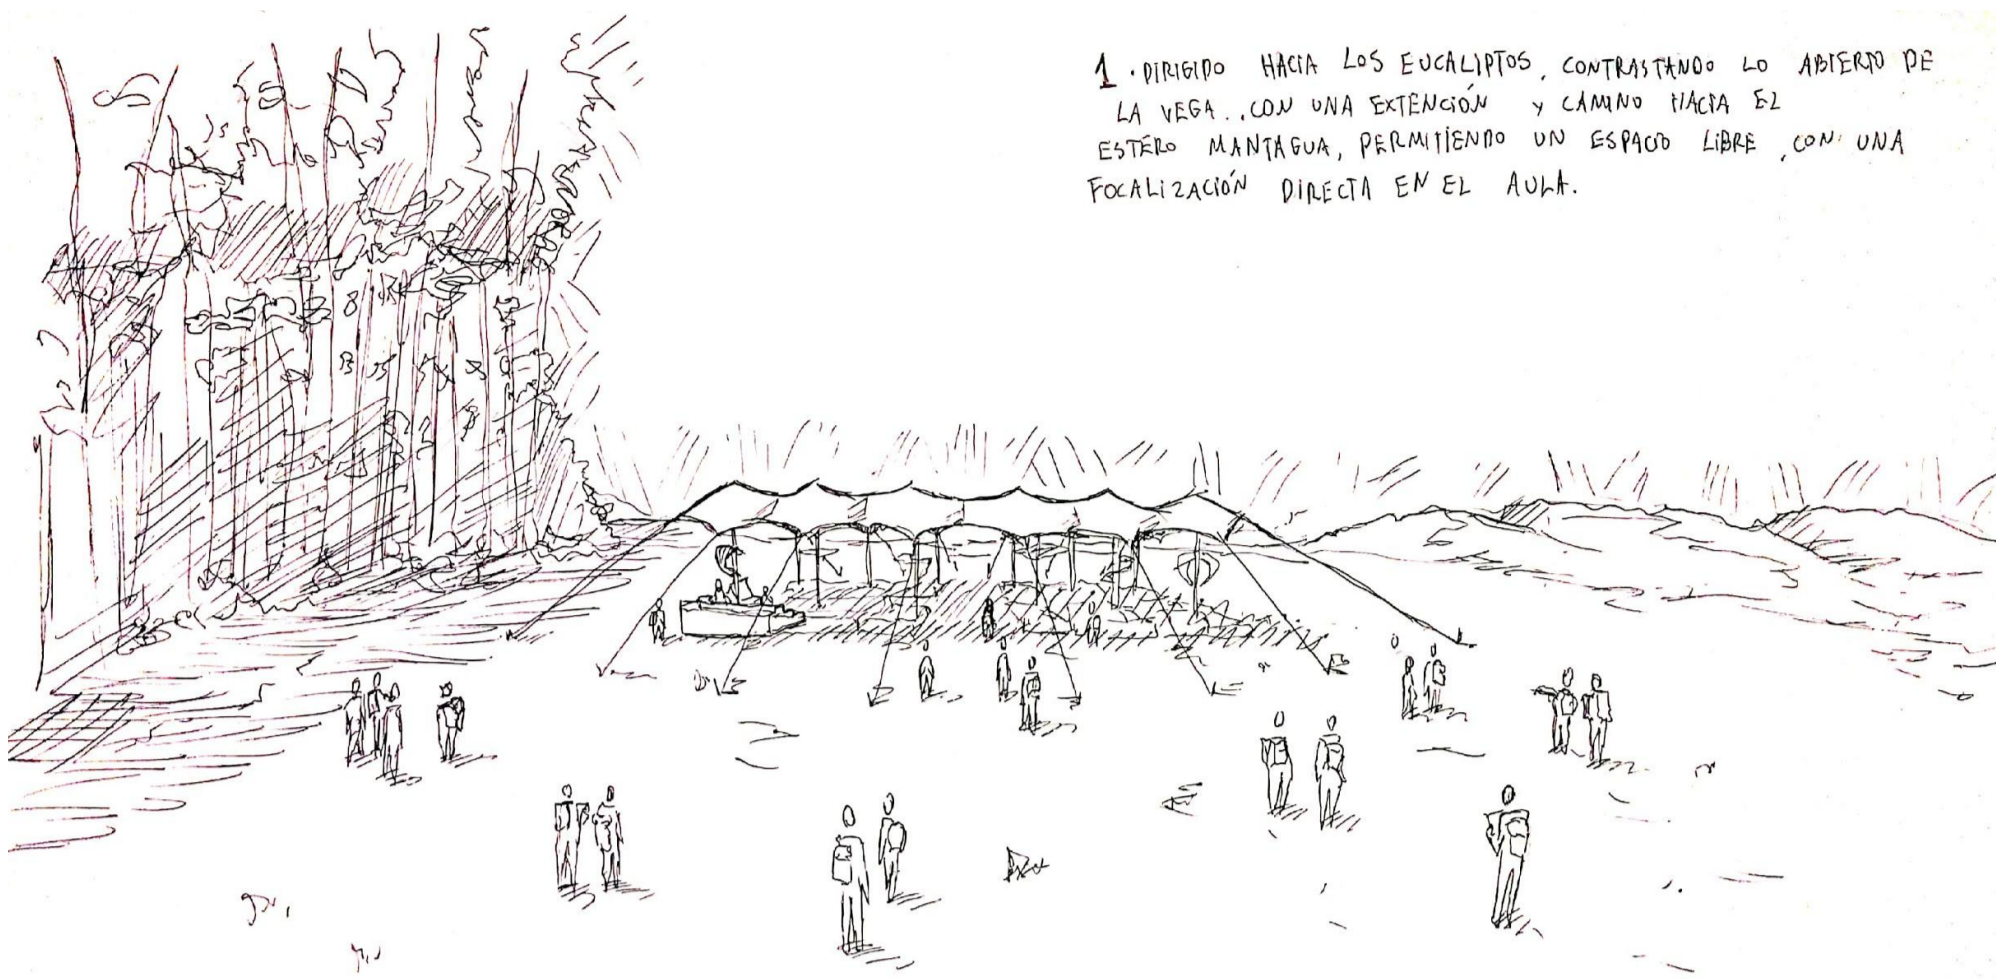 1. DIRIGIDO HACIA LOS EUCALIPTOS, CONTRASTANDO LO ABIERTO DE
LA VEGA.. CON UNA EXTENCIÓN Y CAMINO HACIA EL
ESTERO MANTAGUA, PERMITIENDO UN ESPACIO LIBRE, CON UNA
FOCALIZACIÓN DIRECTA EN EL AULA.